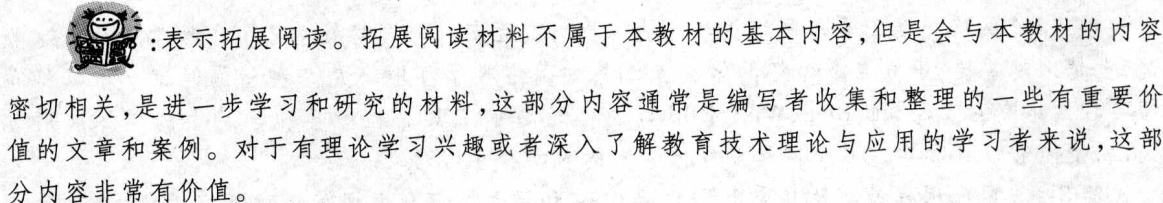 :表示拓展阅读。拓展阅读材料不属于本教材的基本内容,但是会与本教材的内容
密切相关,是进一步学习和研究的材料,这部分内容通常是编写者收集和整理的一些有重要价
值的文章和案例。对于有理论学习兴趣或者深入了解教育技术理论与应用的学习者来说,这部
分内容非常有价值。